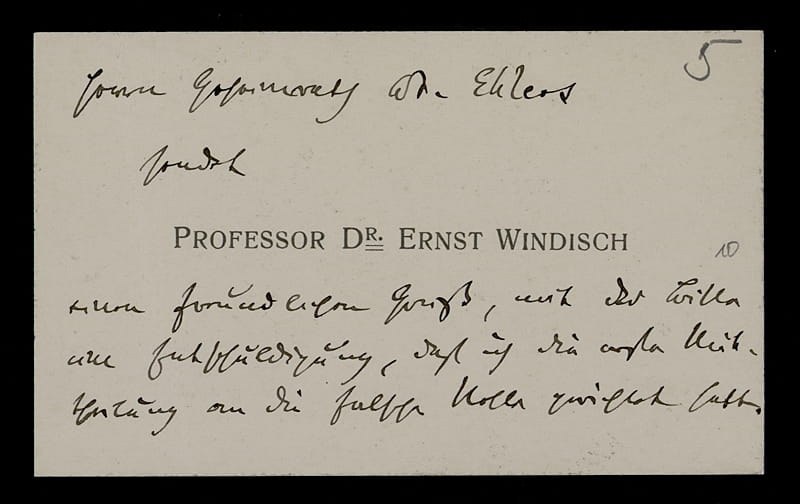 5
Herrn Geheimrath Dr. Ehlers
sendet
PROFESSOR DR. ERNST WINDISCH
10
einen freundlichen Gruß, mit der Bitte
um Entschuldigung, daß ich die erste Mit-
theilung an die falsche Stelle gerichtet hatte.